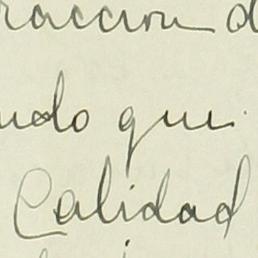 raccion d
udo que
Calidad